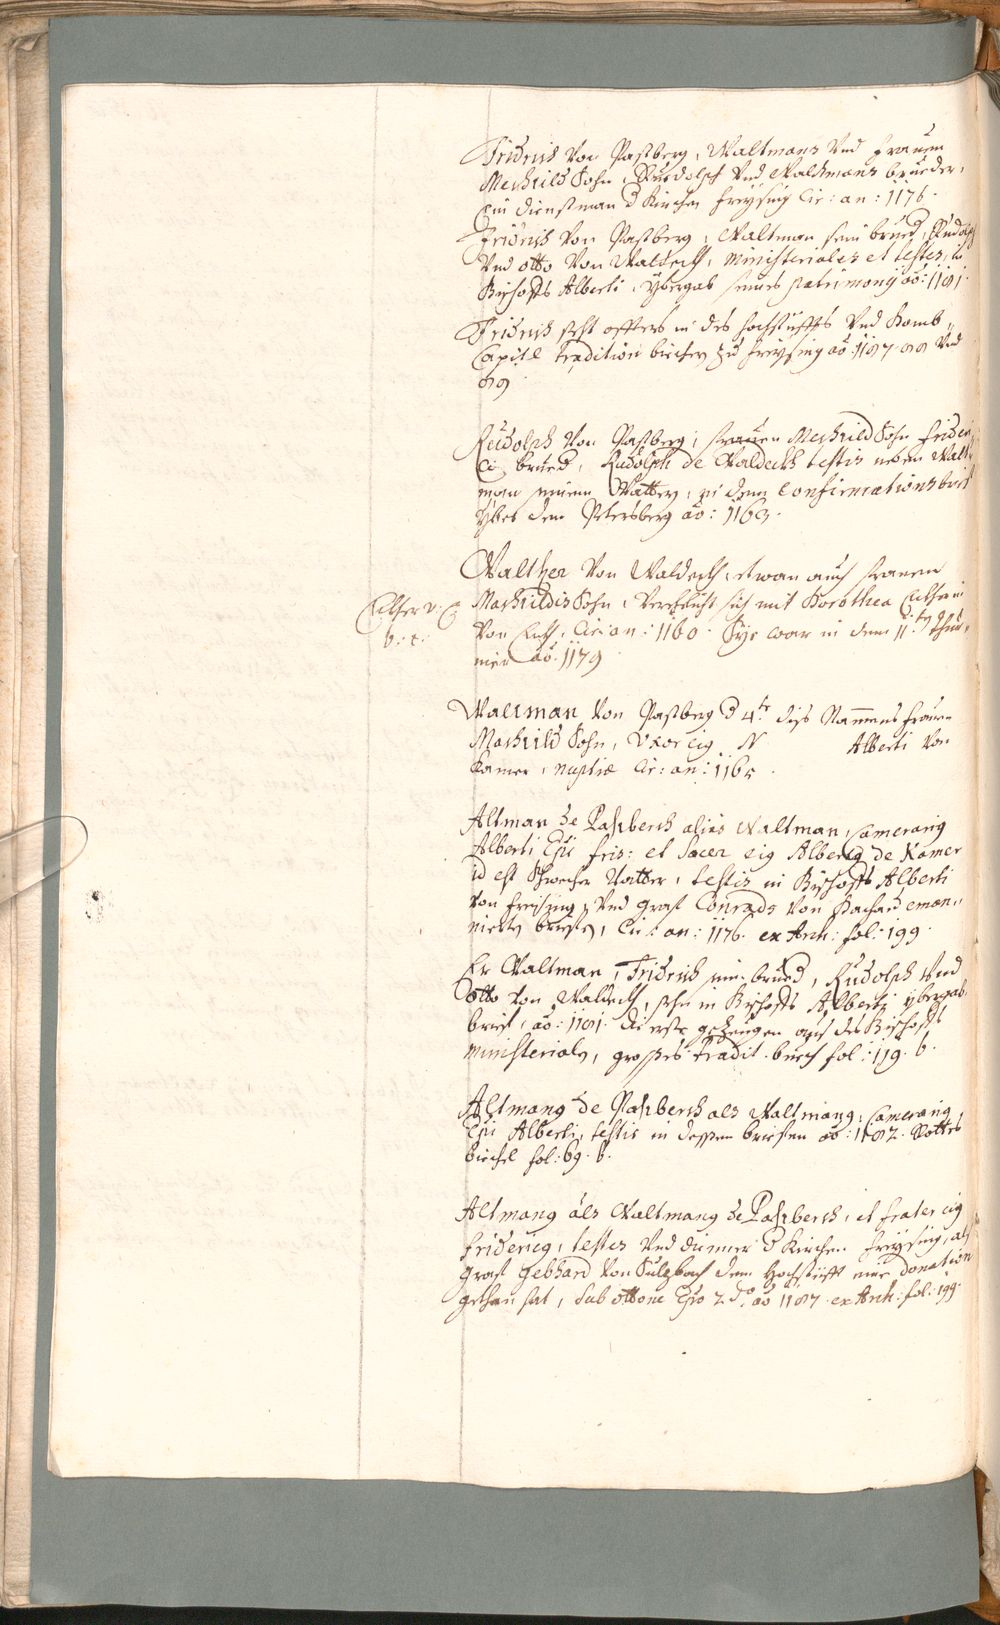 Fridrich von Pastberg, Waltmans vnd frauen
Mechtild Sohn, Ruedolph vnd Waltmans brueder,
Ein dienstman d Kirchen Freysing Cir: an: 1176.
Fridrich von Pastberg, Waltman sein brued, Rudolph
vnd otto von Waldeckh, Ministeriales et testes, in
Bischoffs Alberti ybergab seines patrimonij ao: 1181.
Fridrich steht offters in des hochstiffts vnd Domb
Capitl Tradition biecher zu Freysing ao: 1187. 88 vnd
89
Rudolph von Pastberg, frauen Mechtild Sohn frideri
ci brued, Rudolph de Waldeckh testis neben Walt
man seinem Vatter, in dem Confirmations brief
yber dem Petersberg ao: 1163.
Walther von Waldeckh, etwan auch frauen
Machtildis Sohn, Verheurht sich mit Dorothea
von Cir: an: 1160. Sye war in dem 11.ten Thur
nier ao: 1179
Waltman von Pastberg d 4.te diss Nammens frauen
Machtild Sohn, Vxor eig N Alberti von
Kamer, nuptiæ Cir: an: 1165.
Altman de Paszberch alias Waltman, Camerarig
Alberti Epi fris: et Socer eig Alberig de Kamer
id est Schwecher Vatter, testis in Bischoffs Alberti
von Freising, vnd Graf Conrads von Dachau eman
nierten brieffen, Cir: an: 1176. ex Arch: fol: 199.
Er Waltman, Fridrich sein brued, Rudolph vnd
Otto von Waldeckh, sehn in Bischoffs Alberti ybergab
brief, ao: 1181. die erste gezeugen auss des Bischoffs
Ministerialn, grosses tradit. buech fol: 119. b.
Altmang de Paszberch als Waltmang, Camerarig
Epi Alberti, testis in dessen briefen ao: 1182.
biechel fol: 69. b.
Altmang als Waltmang de Paszberch, et frater eig
Friderig, testes vnd dienner d Kirchen Freysing, als
Graf Gebhard von Sulzbach dem Hochstifft eine donation
gethan hat, sub ottone Epo 2.do ao 1187. ex Arch: fol: 199.